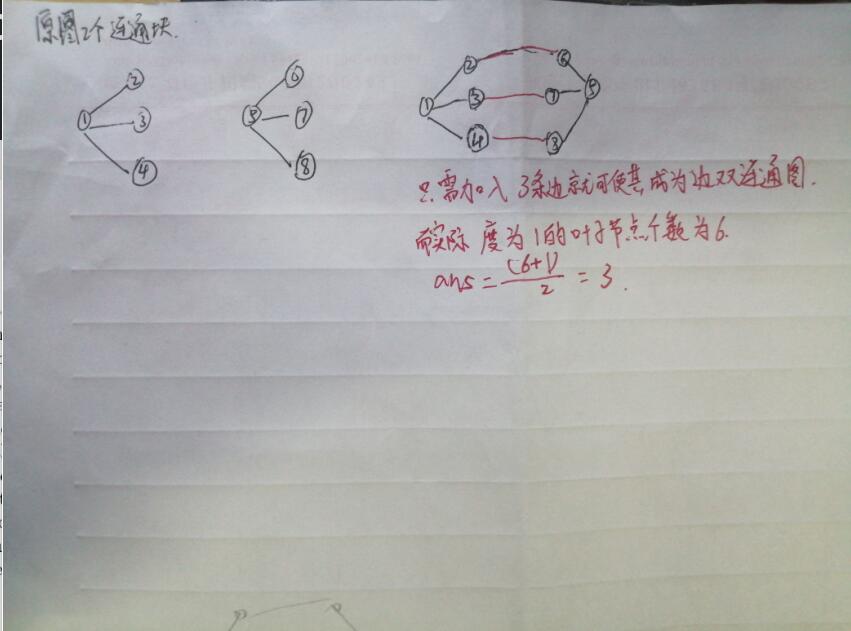 原图2个连通块.
① ② ③ ④
⑤ ⑥ ⑦ ⑧
① ② ③ ④ ⑥ ⑦ ⑧ ⑤
只需加入 3条边就可使其成为边双连通图.
而实际 度为1的叶子节点个数为6.
ans = (6+1)/2 = 3.